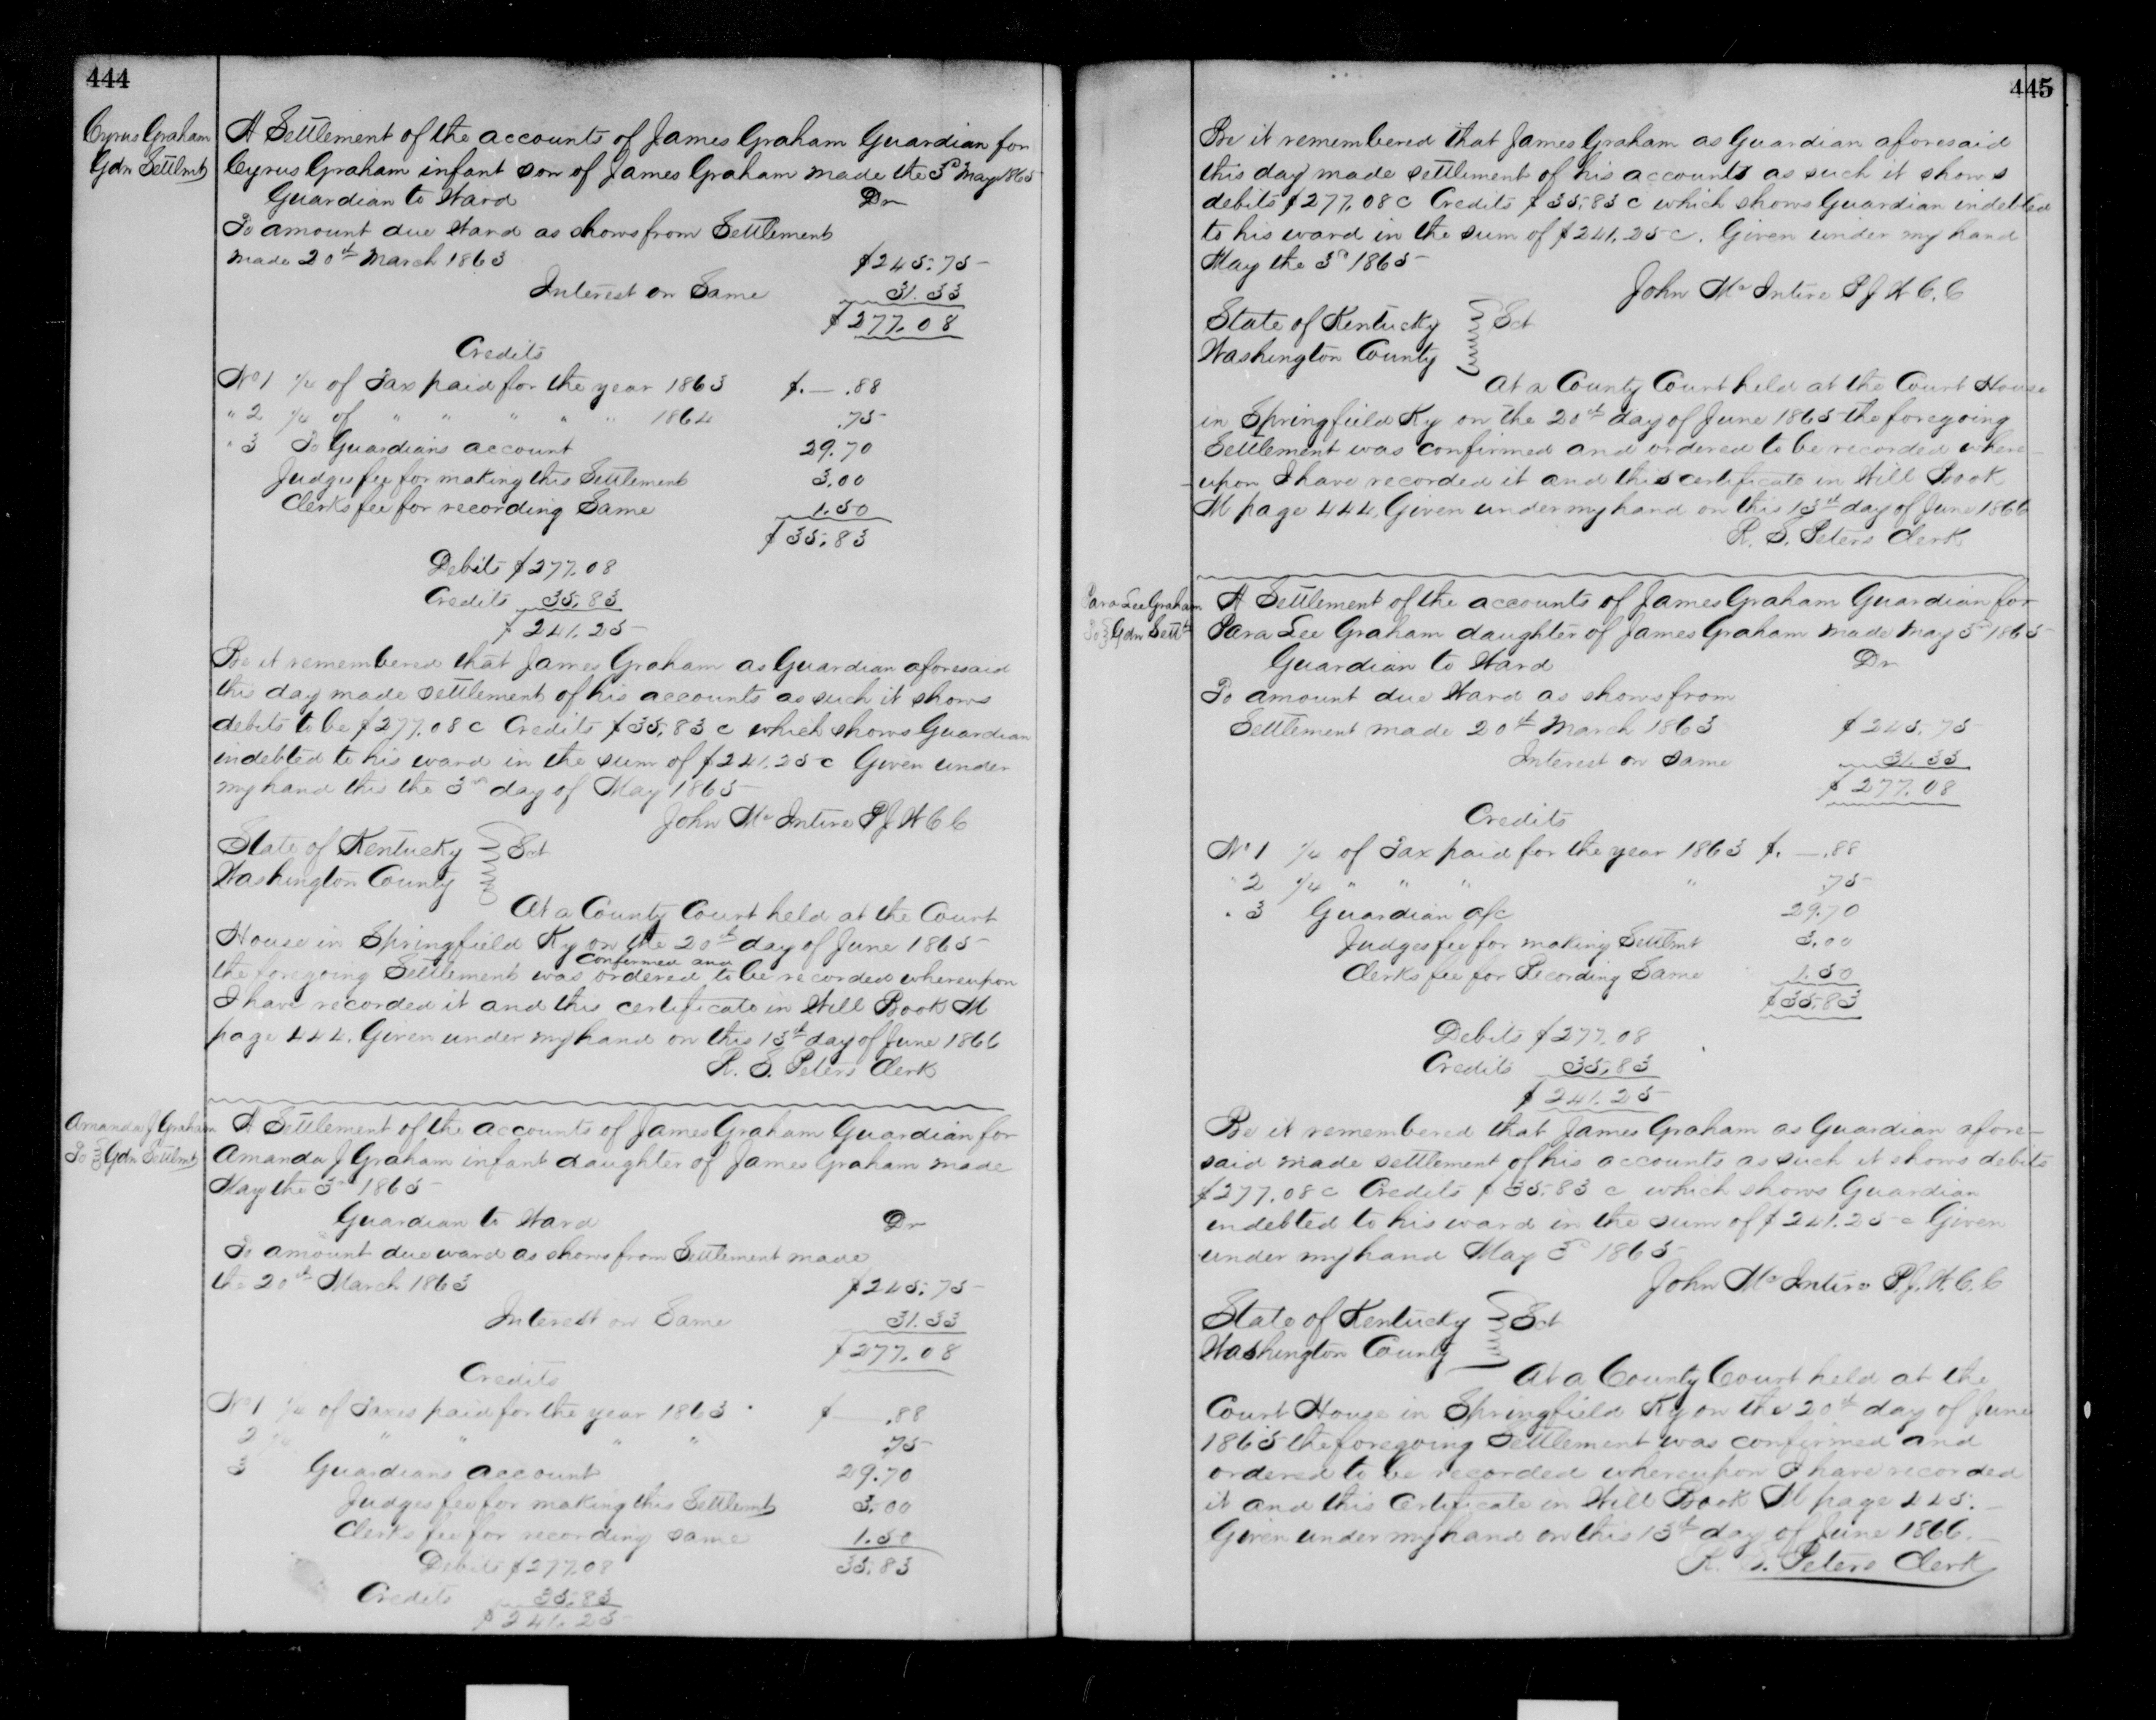 444
Cyrus Graham
Gdn Settlmt
A Settlement of the accounts of James Graham Guardian for
Cyrus Graham infant son of James Graham made the 3d May 1865
Guardian to Ward Dr
To amount due Ward as shows from Settlement
made 20th March 1863 $245.75
Interest on Same 31.33
$277.08
Credits
No 1 1/4 of Tax paid for the year 1863 $.—.88
" 2 1/4 of " " " " " 1864 .75
" 3 To Guardians account 29.70
Judges fee for making this Settlement 3.00
Clerks fee for recording Same 1.50
$35.83
Debits $277.08
Credits 35.83
$241.25
Be it remembered that James Graham as Guardian aforesaid
this day made settlement of his accounts as such it shows
debits to be $277.08 c Credits $35.83 c which shows Guardian
indebted to his ward in the sum of $241.25 c Given under
my hand this the 3rd day of May 1865
John McIntire P J W C C
State of Kentucky } Sct
Washington County
At a County Court held at the Court
House in Springfield Ky on the 20th day of June 1865
confirmed and
the foregoing Settlement was ordered to be recorded whereupon
I have recorded it and this certificate in Will Book M
page 444. Given under my hand on this 13th day of June 1866
R. S. Peters Clerk
Amanda J Graham
To } Gdn Settlmt
A Settlement of the accounts of James Graham Guardian for
Amanda J Graham infant daughter of James Graham made
May the 3d 1865
Guardian to Ward Dr
To amount due ward as shows from Settlement made
the 20th March 1863 $245.75
Interest on Same 31.33
$277.08
Credits
No 1 1/4 of Taxes paid for the year 1863 $ .88
2 1/4 " " " " .75
3 Guardians account 29.70
Judges fee for making this Settlemt 3.00
Clerks fee for recording same 1.50
Debits $277.08 35.83
Credits 35.83
$241.25
445
Be it remembered that James Graham as Guardian aforesaid
this day made settlement of his accounts as such it shows
debits $277.08 c Credits $35.83 c which shows Guardian indebted
to his ward in the sum of $241.25 c. Given under my hand
May the 3d 1865
John McIntire P J W C. C
State of Kentucky } Sct
Washington County
At a County Court held at the Court House
in Springfield Ky on the 20th day of June 1865 the foregoing
Settlement was confirmed and ordered to be recorded where-
-upon I have recorded it and this certificate in Will Book
M page 444. Given under my hand on this 13th day of June 1866
R. S. Peters Clerk
Para Lee Graham
To } Gdn Settlt
A Settlement of the accounts of James Graham Guardian for
Para Lee Graham daughter of James Graham made May 3d 1865
Guardian to Ward Dr
To amount due Ward as shows from
Settlement made 20th March 1863 $245.75
Interest on same 31.33
$277.08
Credits
No 1 1/4 of Tax paid for the year 1863 $.—.88
" 2 1/4 " " " " .75
" 3 Guardian a/c 29.70
Judges fee for making Settlmt 3.00
Clerks fee for Recording Same 1.50
$35.83
Debits $277.08
Credits 35.83
$241.25
Be it remembered that James Graham as Guardian afore-
said made settlement of his accounts as such it shows debits
$277.08 c Credits $35.83 c which shows Guardian
indebted to his ward in the sum of $241.25 c Given
under my hand May 3d 1865
John McIntire P. J. W. C. C
State of Kentucky } Sct
Washington County
At a County Court held at the
Court House in Springfield Ky on the 20th day of June
1865 the foregoing Settlement was confirmed and
ordered to be recorded whereupon I have recorded
it and this Certificate in Will Book M page 445.
Given under my hand on this 13th day of June 1866.
R. S. Peters Clerk